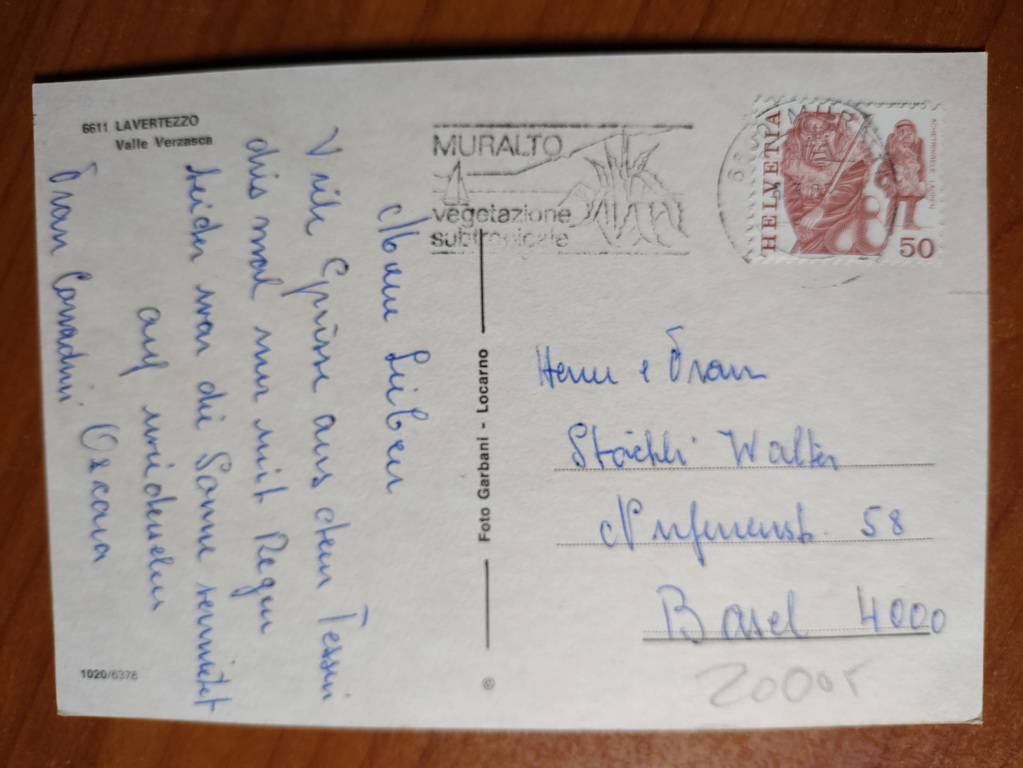 6611 LAVERTEZZO
Valle Verzasca
Meine Lieben
Viele Grüsse aus dem Tessin
dis mal nur mit Regen
leider war die Sonne vermietet
auf wiedersehen
Oxana
Frau Corradini
1020/6376
Foto Garbani - Locarno
©
MURALTO
vegetazione
subtropicale
HELVETIA
50
Herrn e Frau
Stächli Walter
Nufenenst. 58
Basel 4000